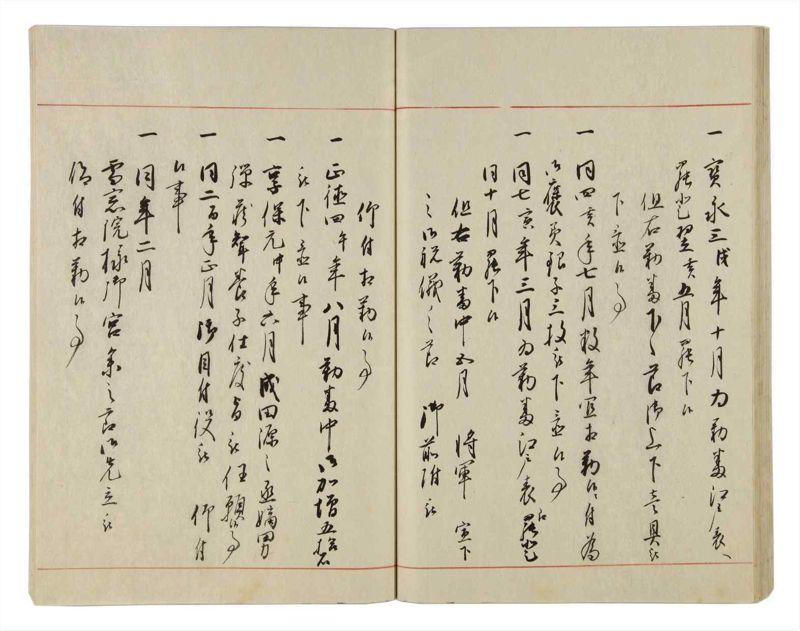 一 寶永三戌年十月為勤番江戸表へ
罷登翌亥五月罷下候
但右勤番下之節御上下壱具被
下置候事
一 同四亥年七月数年宜相勤候ニ付為
御褒美銀子三枚被下置候事
一 同七寅年三月為勤番江戸表罷登候
同十月罷下候
但右勤番中五月 将軍 宣下
之御祝儀之節 御前附被
仰付相勤候事
一 正徳四午年八月勤番中御加増五拾石
被下置候事
一 享保元申年六月成田源之丞嫡男
弾蔵聟養子仕度旨被任願候事
一 同二酉年正月御目付役被 仰付
候事
一 同年二月
院様御宮参之節御先立被
仰付相勤候事